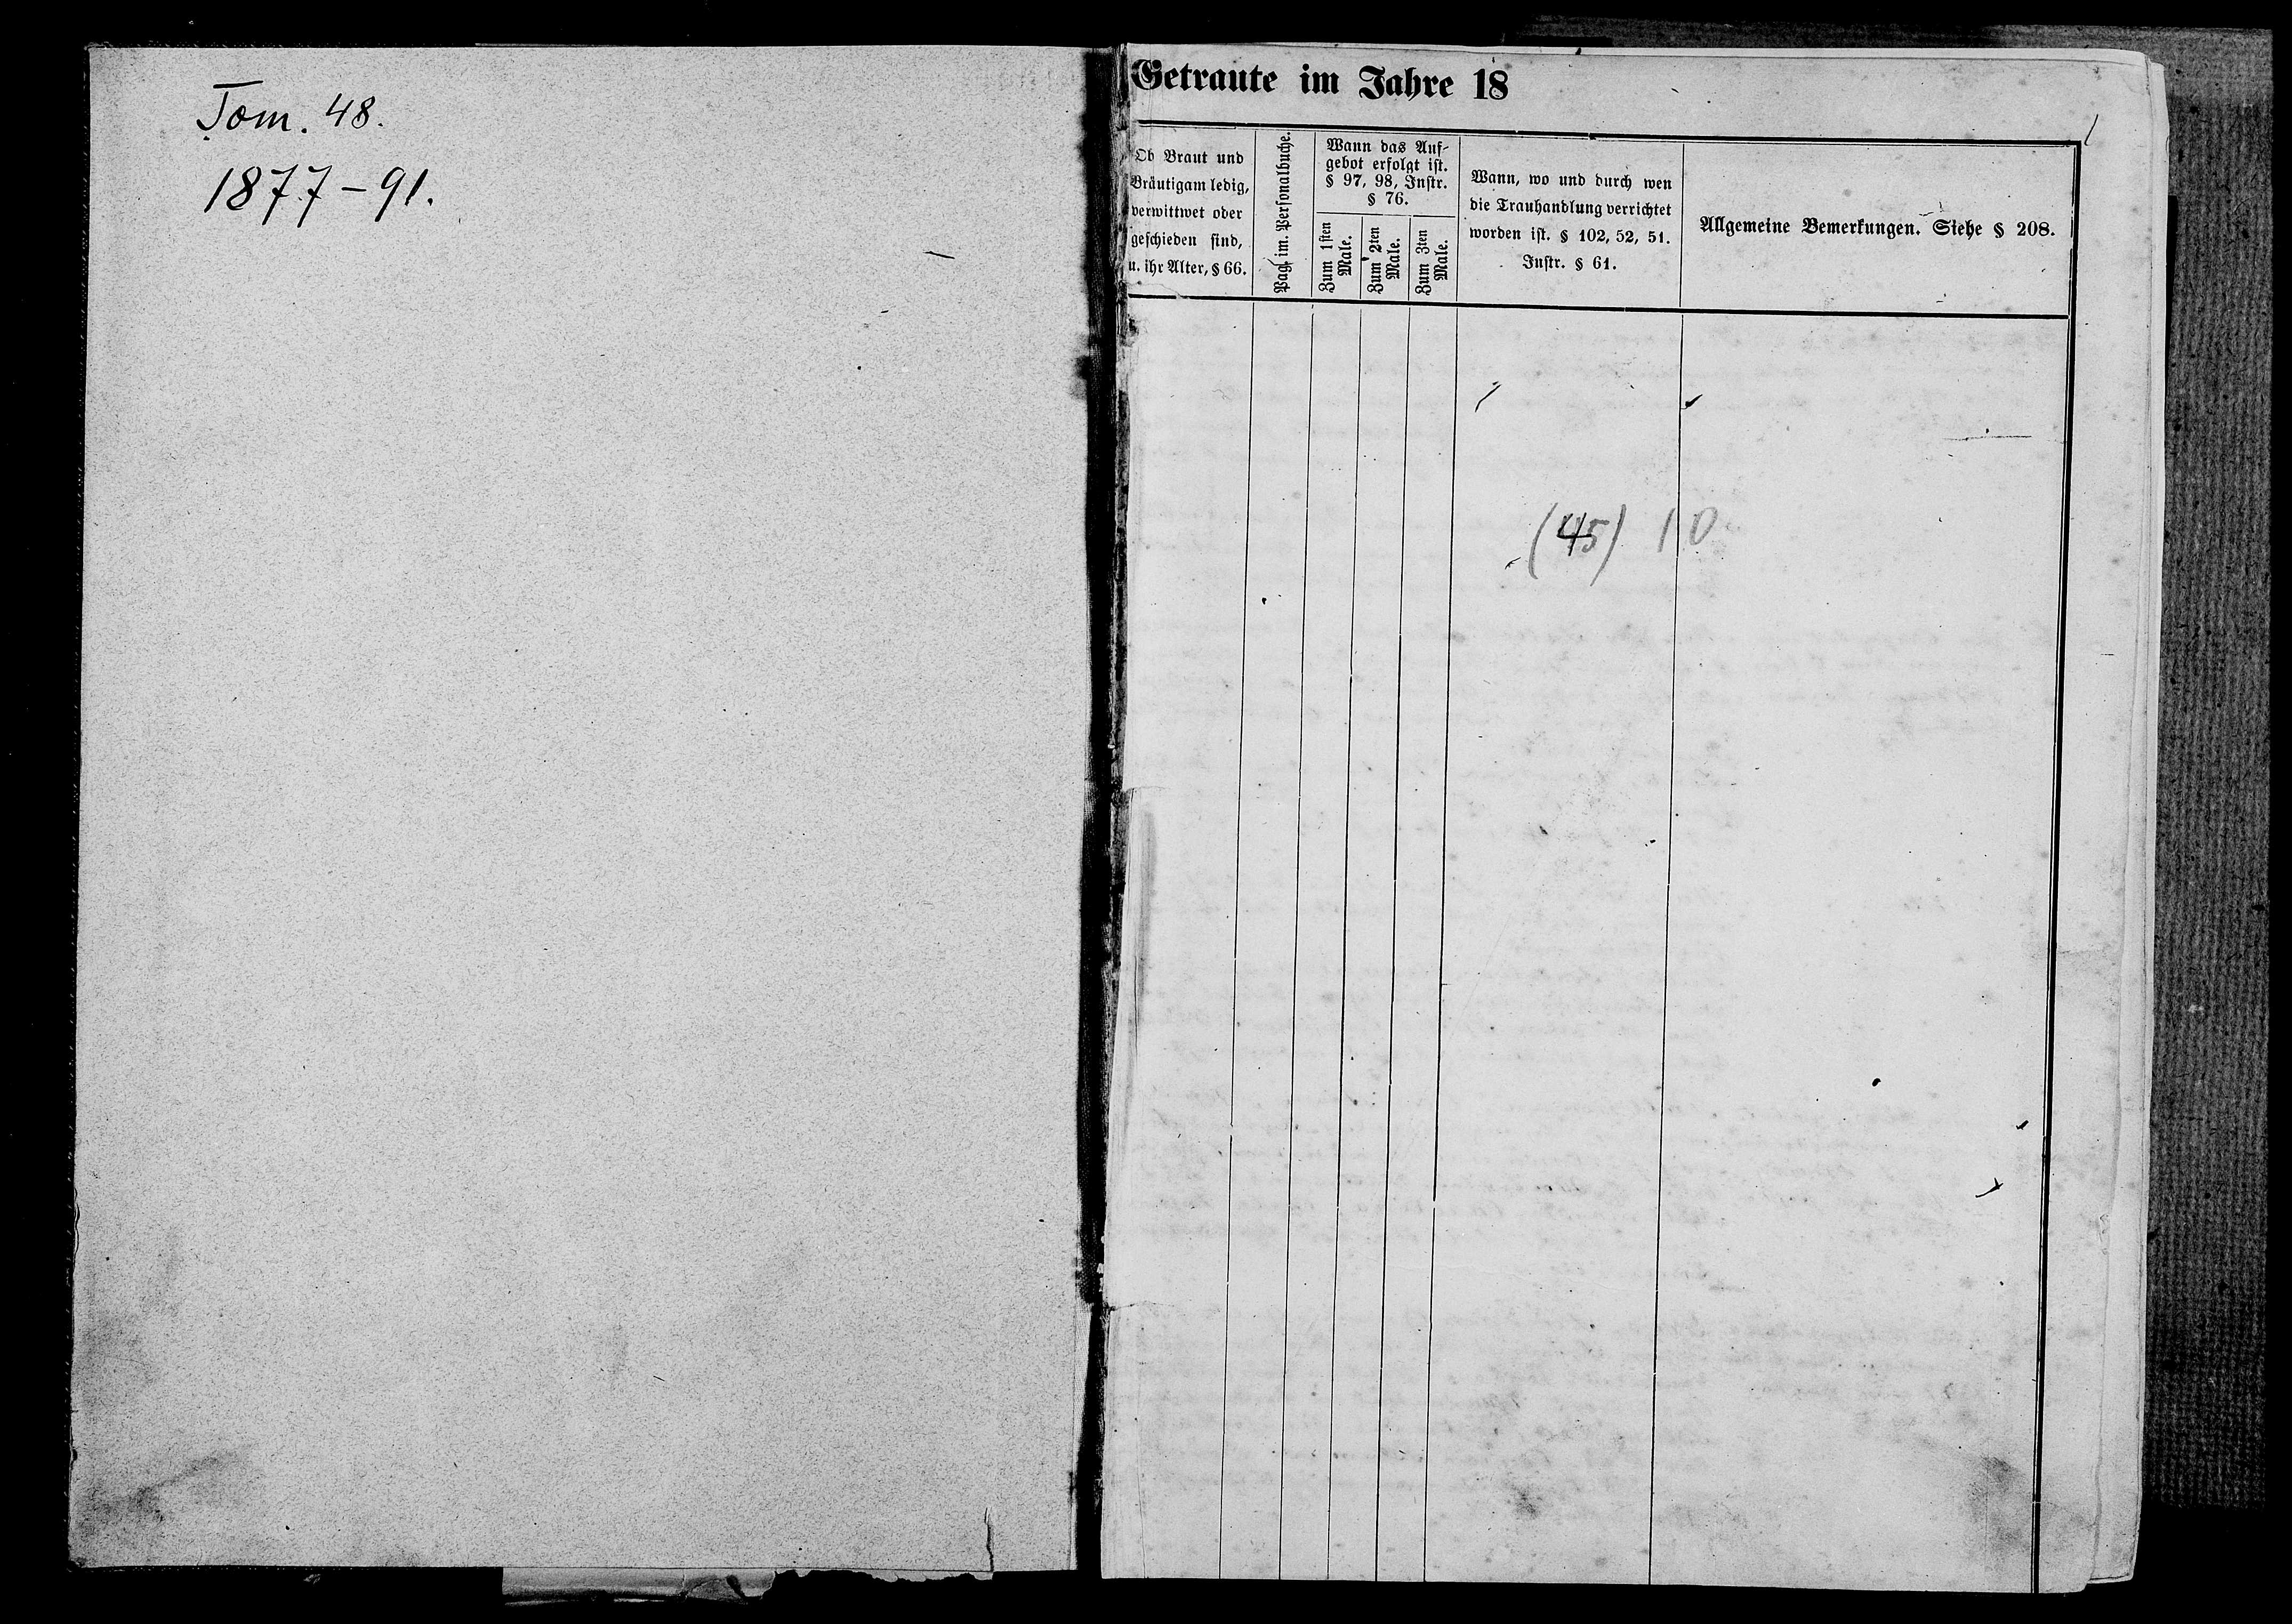 Tom. 48.
1877-91.
Getraute im Jahre 18
Ob Braut und
Bräutigam ledig,
verwittwet oder
geschieden sind,
u. ihr Alter, § 66.
Pag. im. Personalbuche.
Wann das Auf-
gebot erfolgt ist.
§ 97, 98, Instr.
§ 76.
Zum 1sten
Male.
Zum 2ten
Male.
Zum 3ten
Male.
Wann, wo und durch wen
die Trauhandlung verrichtet
worden ist. § 102, 52, 51.
Instr. § 61.
Allgemeine Bemerkungen. Siehe § 208.
(45) 10